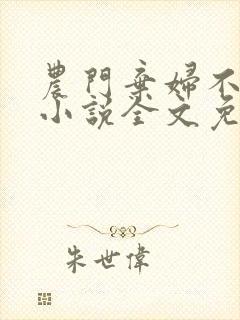 農門棄婦不
小說全文免
朱世偉